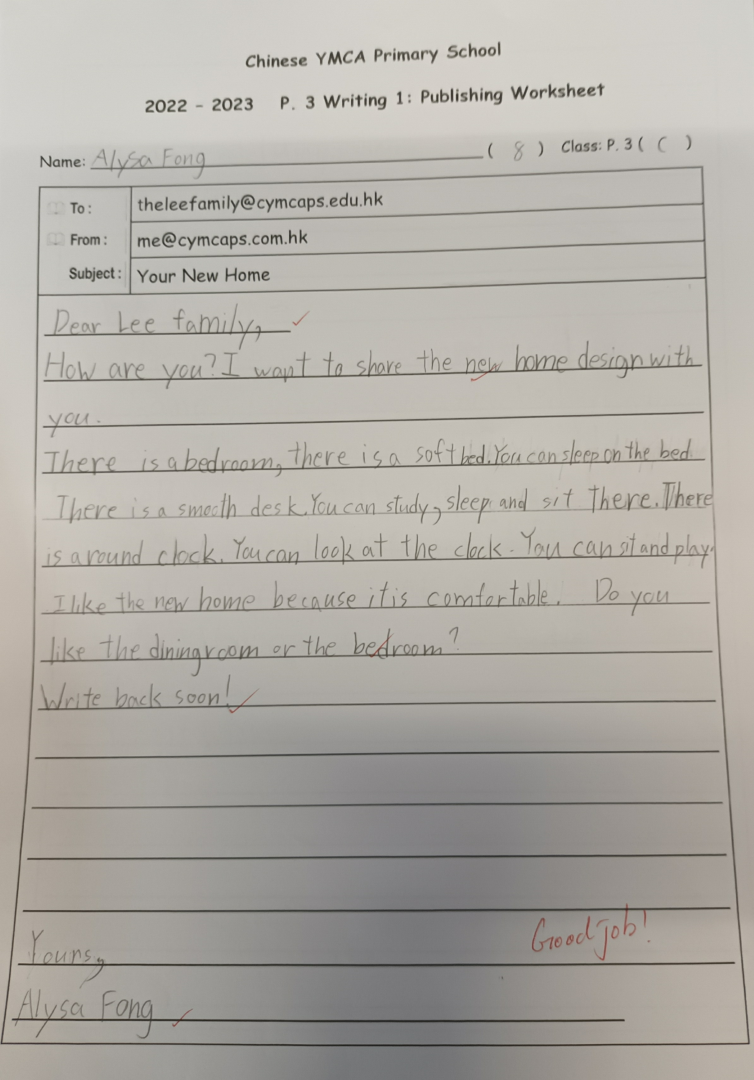 Chinese YMCA Primary School
2022 - 2023 P. 3 Writing 1: Publishing Worksheet
Name: Alysa Fong ( 8 ) Class: P. 3 ( C )
To : theleefamily@cymcaps.edu.hk
From : me@cymcaps.com.hk
Subject : Your New Home
Dear Lee family,
How are you? I want to share the new home design with
you.
There is a bedroom, there is a soft bed. You can sleep on the bed
There is a smooth desk. You can study, sleep and sit there. There
is a round clock. You can look at the clock. You can sit and play.
I like the new home because it is comfortable. Do you
like the dining room or the bedroom?
Write back soon!
Good job!
Yours,
Alysa Fong